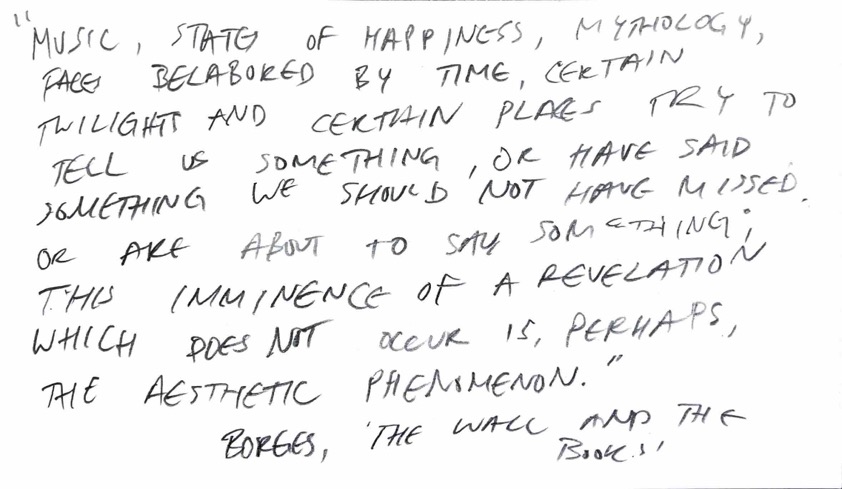 "MUSIC, STATES OF HAPPINESS, MYTHOLOGY,
FACES BELABORED BY TIME, CERTAIN
TWILIGHTS AND CERTAIN PLACES TRY TO
TELL US SOMETHING, OR HAVE SAID
SOMETHING WE SHOULD NOT HAVE MISSED,
OR ARE ABOUT TO SAY SOMETHING;
THIS IMMINENCE OF A REVELATION
WHICH DOES NOT OCCUR IS, PERHAPS,
THE AESTHETIC PHENOMENON."
BORGES, 'THE WALL AND THE
BOOKS'